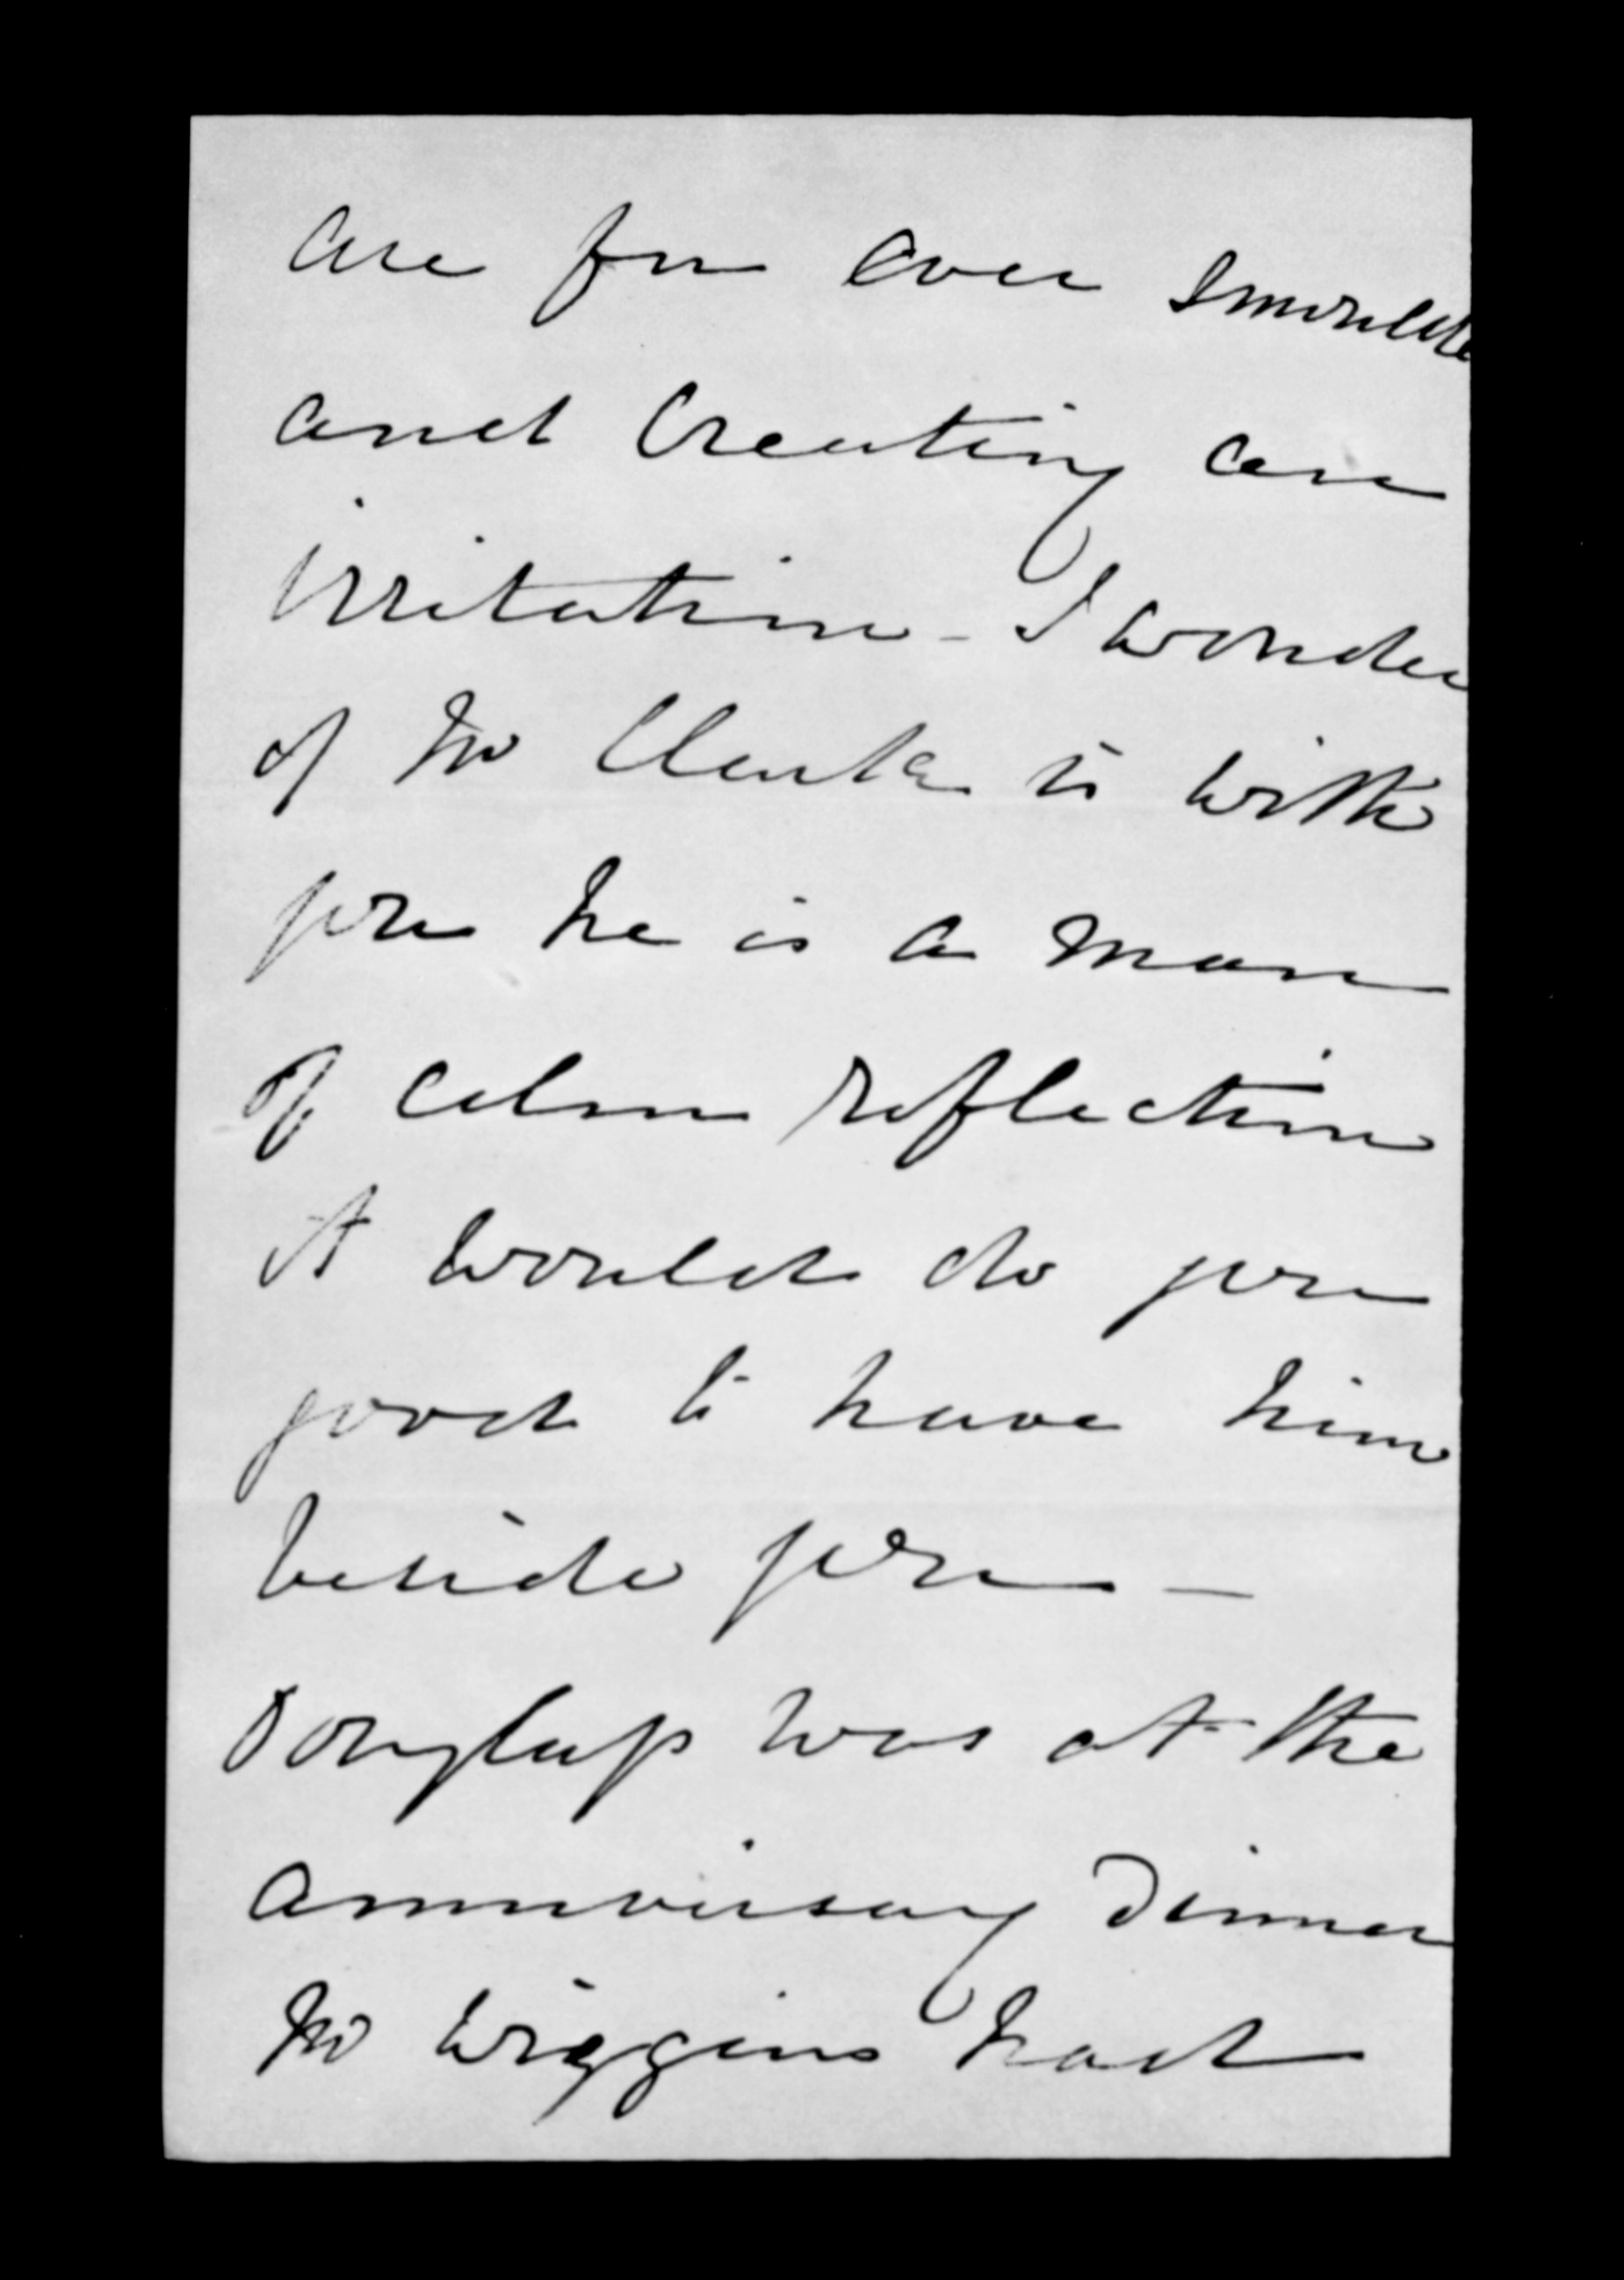 are for ever smoulde
and Creating an
irritation - I wonder
if Mr Clarke is with
you he is a man
of calm reflection
it would do you
good to have him
beside you —
Douglass was at the
anniversary Dinner
Mr Wiggins had